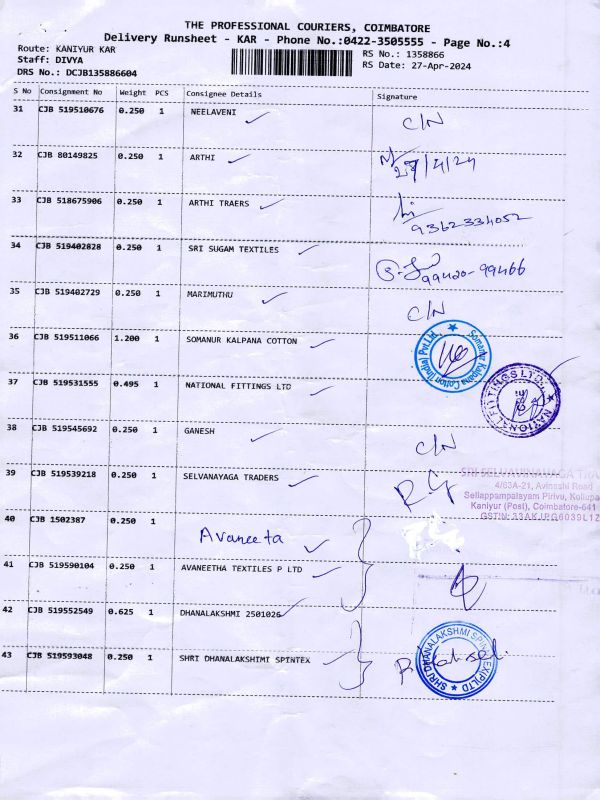 THE PROFESSIONAL COURIERS, COIMBATORE
Delivery Runsheet - KAR - Phone No.:0422-3505555 - Page No.:4
Route: KANIYUR KAR
RS No.: 1358866
Staff: DIVYA
RS Date: 27-Apr-2024
DRS No.: DCJB135886604
S No Consignment No Weight PCS Consignee Details Signature
31 CJB 519510676 0.250 1 NEELAVENI C/N
32 CJB 80149825 0.250 1 ARTHI 27/4/24
33 CJB 518675906 0.250 1 ARTHI TRAERS
9362334052
34 CJB 519402828 0.250 1 SRI SUGAM TEXTILES
99420-99466
35 CJB 519402729 0.250 1 MARIMUTHU C/N
36 CJB 519511066 1.200 1 SOMANUR KALPANA COTTON
Somanur Kalpana Cotton (India) Pvt.Ltd.
37 CJB 519531555 0.495 1 NATIONAL FITTINGS LTD
NATIONAL FITTINGS LTD.
38 CJB 519545692 0.250 1 GANESH C/N
39 CJB 519539218 0.250 1 SELVANAYAGA TRADERS
4/63A-21, Avinashi Road
Sellappampalayam Pirivu,
Kaniyur (Post), Coimbatore-641
GSTIN: 33AKJPG6039L1Z
40 CJB 1502387 0.250 1 Avaneeta
41 CJB 519590104 0.250 1 AVANEETHA TEXTILES P LTD
42 CJB 519552549 0.625 1 DHANALAKSHMI 2501026
43 CJB 519593048 0.250 1 SHRI DHANALAKSHIMI SPINTEX
SHRI DHANALAKSHMI SPINTEX (P) LTD